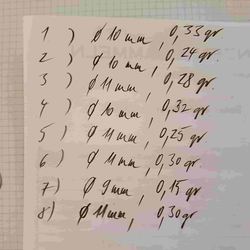 1 ) Ø 10 mm, 0,33 gr.
2 ) Ø 10 mm, 0,24 gr.
3 ) Ø 11 mm, 0,28 gr.
4 ) Ø 10 mm, 0,32 gr
5 ) Ø 11 mm, 0,25 gr
6 ) Ø 11 mm, 0,30 gr.
7 ) Ø 9 mm, 0,15 gr
8 ) Ø 11 mm, 0,30 gr